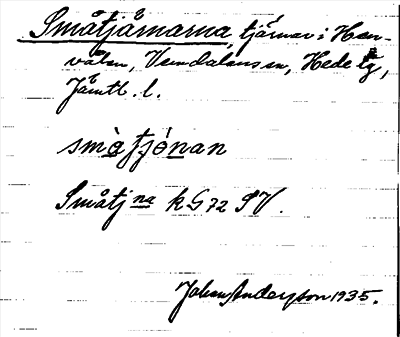 Småtjärnarna, tjärnar i Han-
vålen, Vemdalens sn, Hede tg,
Jämtl. l.
smòtjónan
Småtj na k G72 SV.
Johan Andersson 1935.